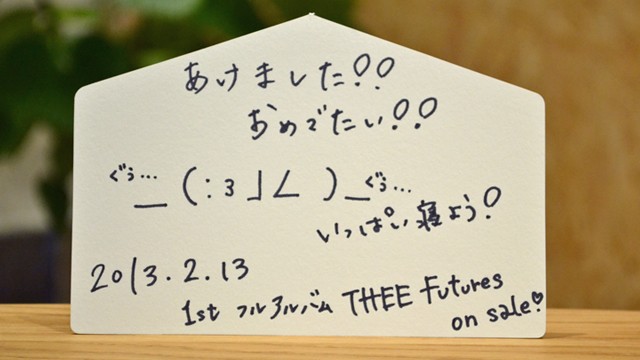 あけました!!
おめでたい!!
ぐぅ… _(:3」∠ )_ ぐぅ…
いっぱい寝よう!
2013.2.13
1st フルアルバム THEE Futures
on sale!